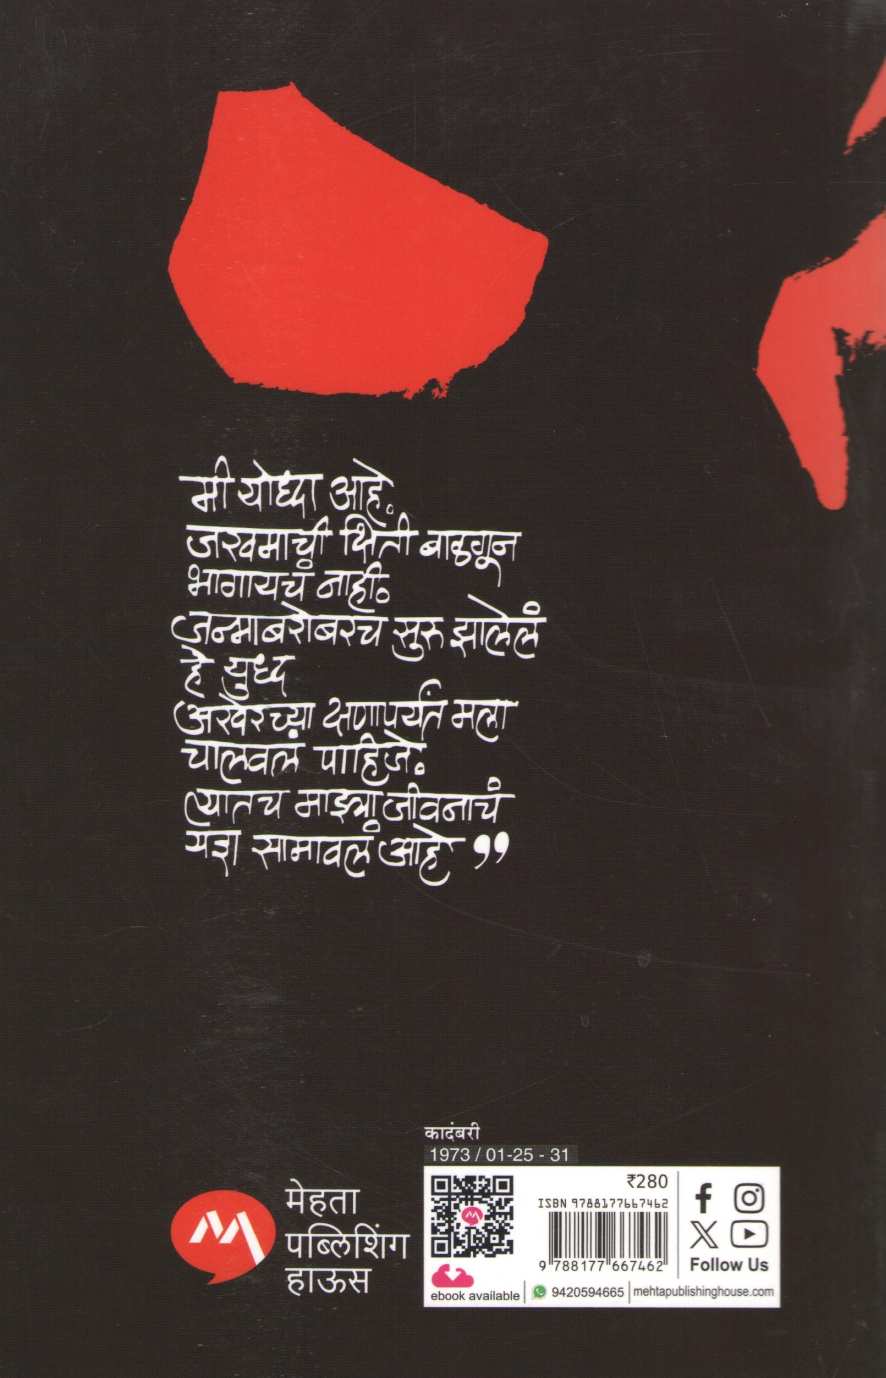 मी योध्दा आहे.
जखमाची भिती बाळगून
भागायचं नाही.
जन्माबरोबरच सुरु झालेलं
हे युध्द
अखेरच्या क्षणापर्यंत मला
चालवलं पाहिजे.
त्यातच माझ्या जीवनाचं
यश सामावलं आहे ”
कादंबरी
1973 / 01-25 - 31
मेहता
पब्लिशिंग
हाऊस
₹280
ISBN 9788177667462
9 788177 667462
Follow Us
ebook available
9420594665
mehtapublishinghouse.com